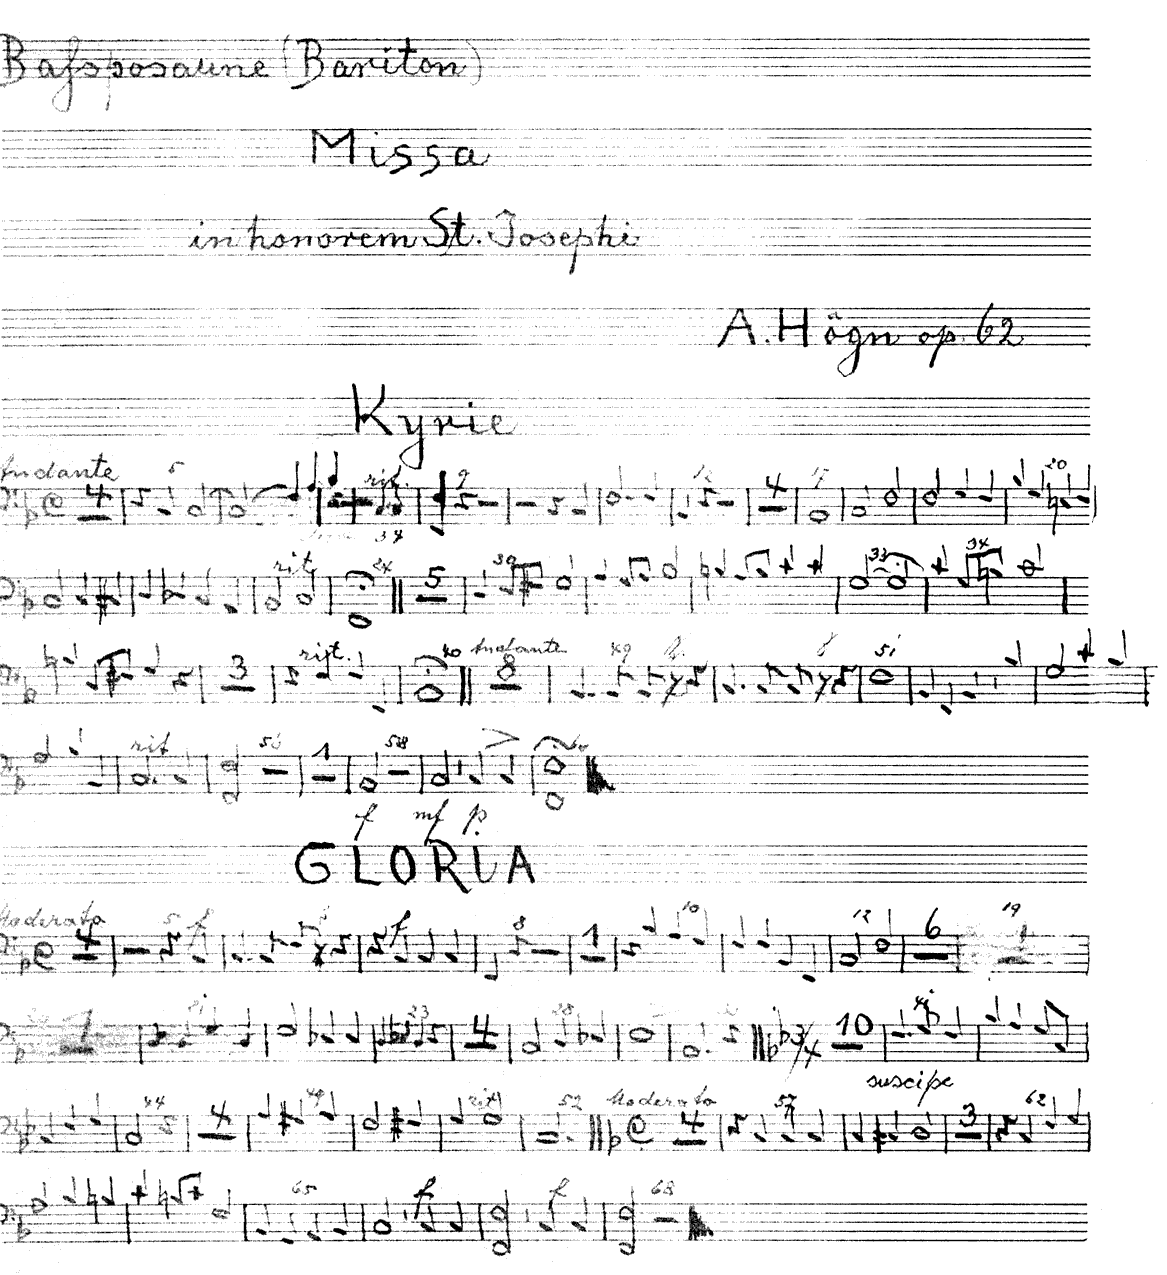 Bassposaune (Bariton)
Missa
in honorem St. Josephi
A. Högn op. 62
Kyrie
Andante 5 rit. 9 4 17 20
4
34
rit. 24 5 30 33 34
3 rit. 40 Andante 8 49 f 51
rit 1 58
f mf p.
GLORIA
Moderato 4 5 f f 8 1 10 12 6 19
1 23 4 3/4 10
suscipe
44 4 49 rit 52 Moderato 4 57 3 62
65 f f 68